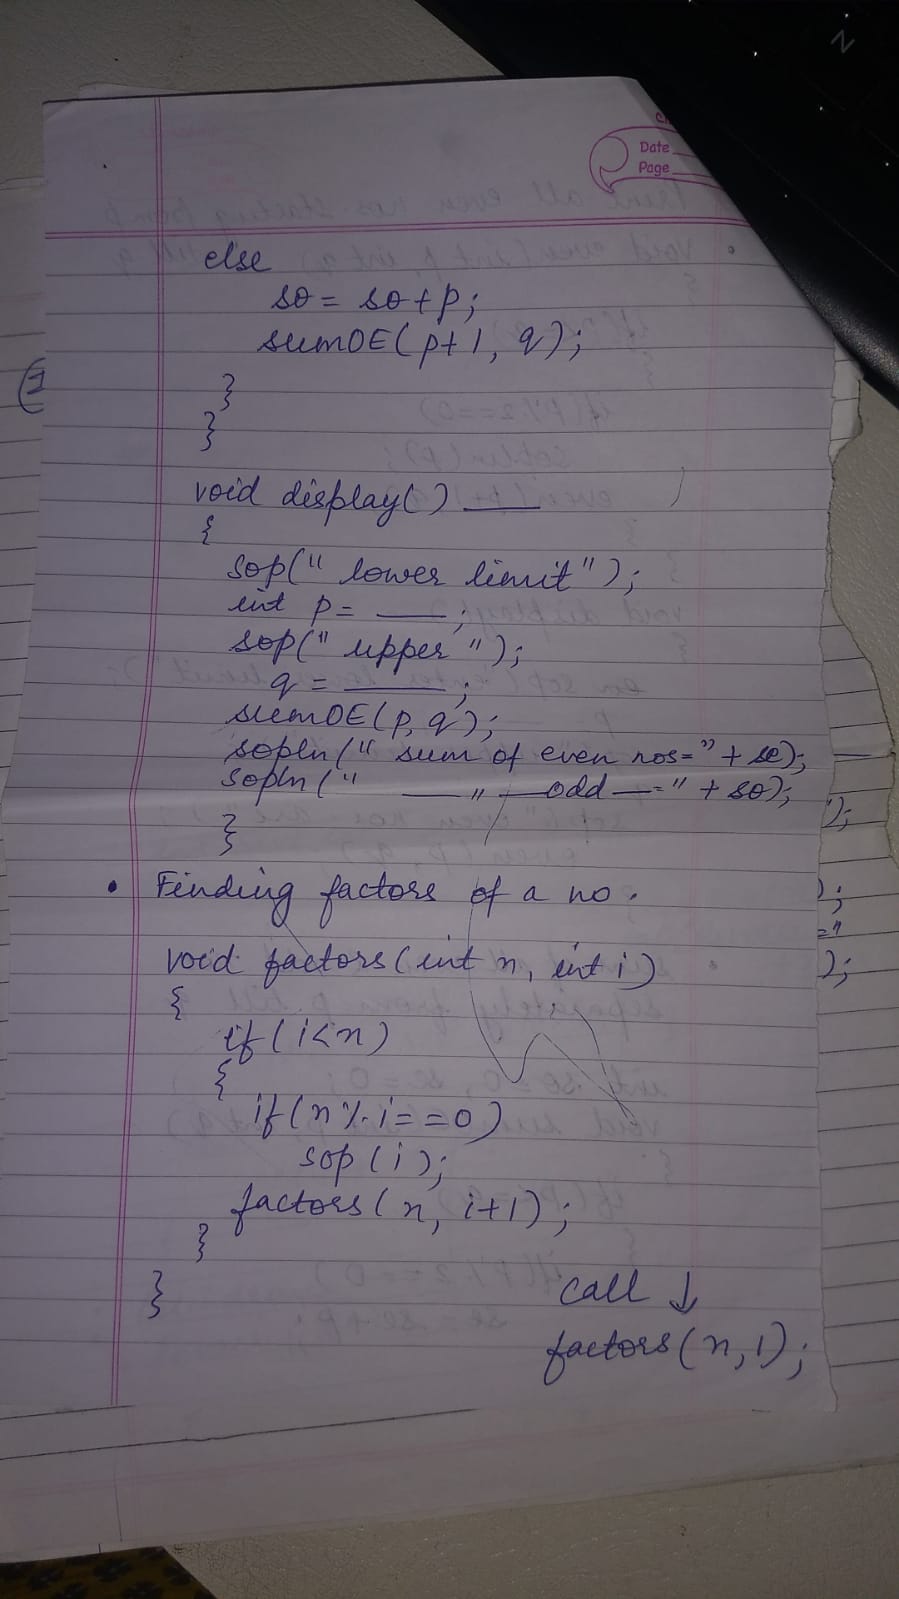 Date
Page
else
so = so+p;
sumOE(p+1, q);
}
}
void display() ____
{
sop(" lower limit");
int p= ____;
sop(" upper ");
q = ____;
sumOE(p, q);
sopln(" sum of even nos=" + se);
sopln(" —"— odd —=" + so);
}
• Finding factors of a no.
void factors(int n, int i)
{
if(i<n)
{
if(n%i==0)
sop(i);
factors(n, i+1);
}
}
call ↓
factors(n,1);